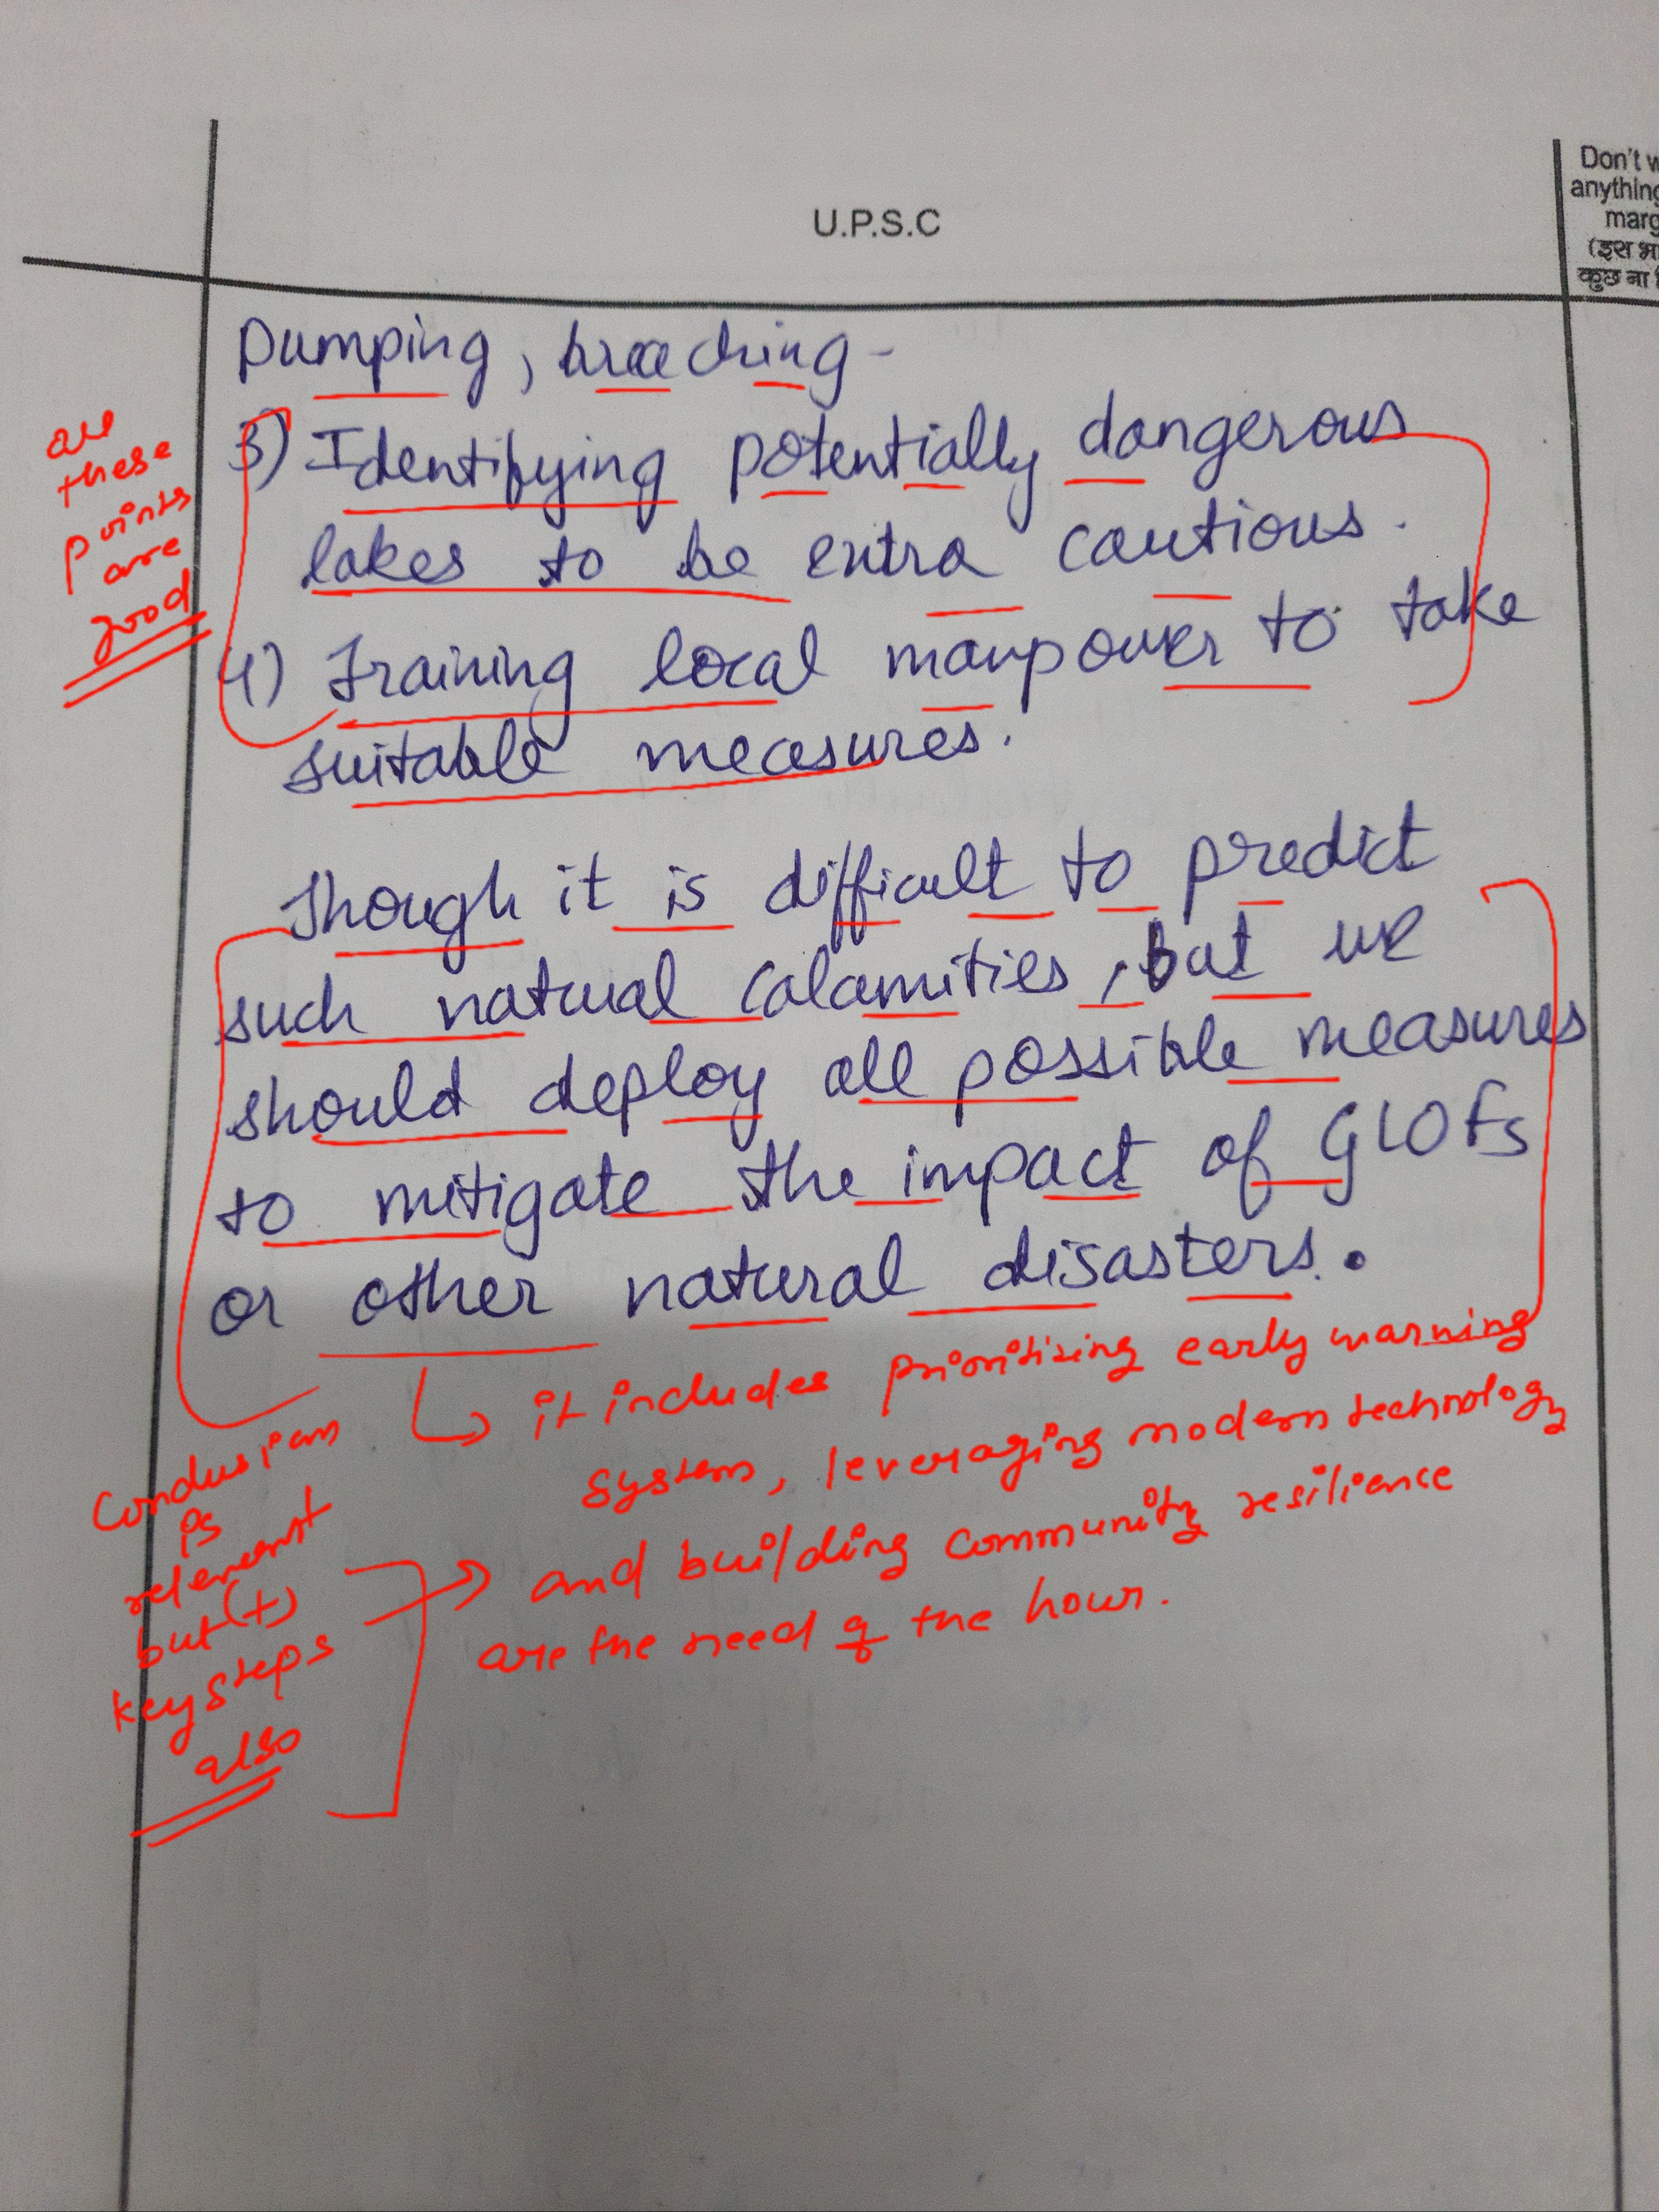 U.P.S.C
Don't w
anything
marg
(इस भा
कुछ ना
Pumping, breaching -
3) Identifying potentially dangerous
lakes to be extra cautious.
4) Training local manpower to take
suitable measures.
are
these
points
are
good
Though it is difficult to predict
such natural calamities, but we
should deploy all possible measures
to mitigate the impact of GLOFs
or other natural disasters.
it includes prioritizing early warning
system, leveraging modern technology
and building community resilience
are the need of the hour.
Conclusion
is
relevant
but (+)
key steps
also